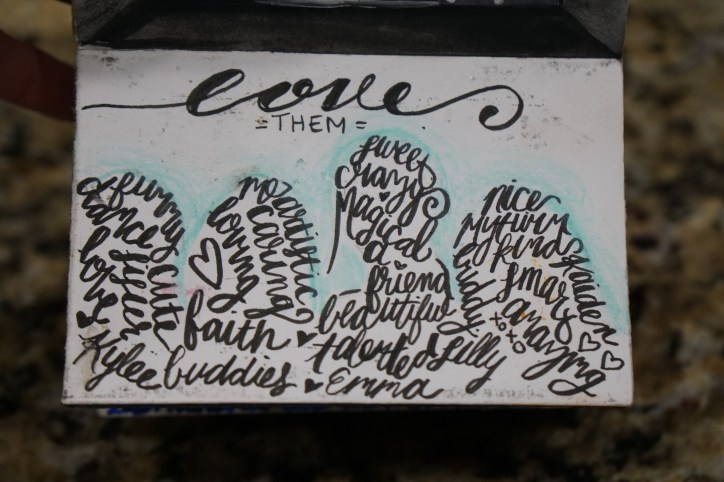 love
= THEM =
funny
dance
cute
sister
loves
Kylee
artistic
caring
loving
faith
buddies
sweet
crazy
Magical
a
friend
beautiful
talented
Emma
nice
My
funny
kind
smart
buddy
amazing
xoxo
Lilly
Kaiden